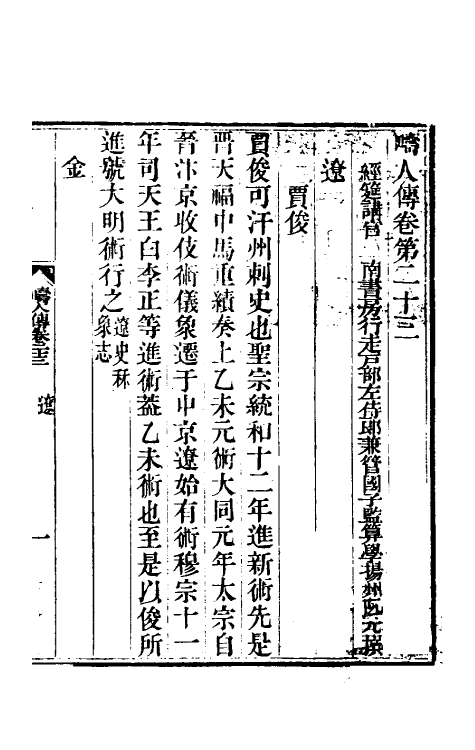 疇人傳卷第二十三
經筵講官 南書房行走戶部左侍郎兼管國子監算學揚州阮元撰
遼
賈俊
賈俊可汗州刺史也聖宗統和十二年進新術先是
晉天福中馬重績奏上乙未元術大同元年太宗自
晉汴京收伎術儀象遷于中京遼始有術穆宗十一
年司天王白李正等進術蓋乙未術也至是以俊所
進號大明術行之遼史秝象志
金
疇人傳卷二十三 遼 一